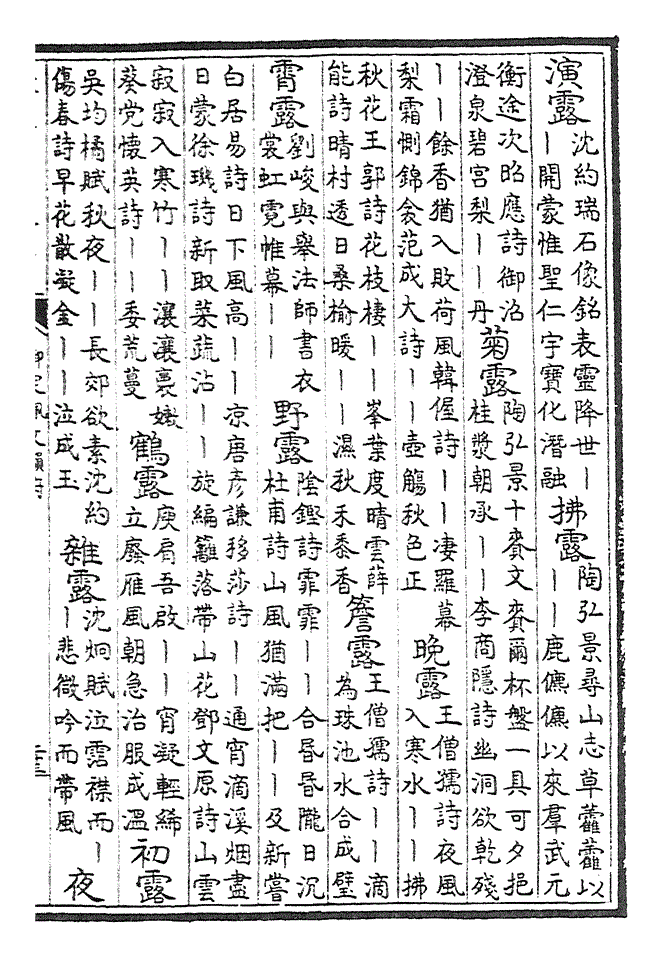 演露
沈約瑞石像銘表靈降世丨
丨開蒙惟聖仁宇寶化潛融
拂露
陶弘景尋山志草藿藿以
丨丨鹿儦儦以來羣武元
衡途次昭應詩御沿
澄泉碧宮梨丨丨丹
菊露
陶弘景十賚文賚爾杯盤一具可夕挹
桂漿朝承丨丨李商隱詩幽洞欲乾殘
丨丨餘香猶入敗荷風韓偓詩丨丨凄羅幕
梨霜惻錦衾范成大詩丨丨壺觴秋色正
晚露
王僧孺詩夜風
入寒水丨丨拂
秋花王郭詩花枝棲丨丨峯葉度晴雲薛
能詩晴村透日桑榆暖丨丨濕秋禾黍香
簷露
王僧孺詩丨丨滴
為珠池水合成璧
霄露
劉峻與舉法師書衣
裳虹霓帷幕丨丨
野露
陰鏗詩霏霏丨丨合昏昏隴日沉
杜甫詩山風猶滿把丨丨及新嘗
白居易詩日下風高丨丨凉唐彦謙移莎詩丨丨通宵滴溪烟盡
日蒙徐璣詩新取菜蔬沾丨丨旋編籬落帶山花鄧文原詩山雲
寂寂入寒竹丨丨瀼瀼裛嫩
葵党懷英詩丨丨委荒蔓
鶴露
庾肩吾啟丨丨宵凝輕絺
立廢雁風朝急治服成溫
初露
吳均橘賦秋夜丨丨長郊欲素沈約
傷春詩早花散凝金丨丨泣成玉
雜露
沈炯賦泣霑襟而丨
丨悲微吟而帶風
夜